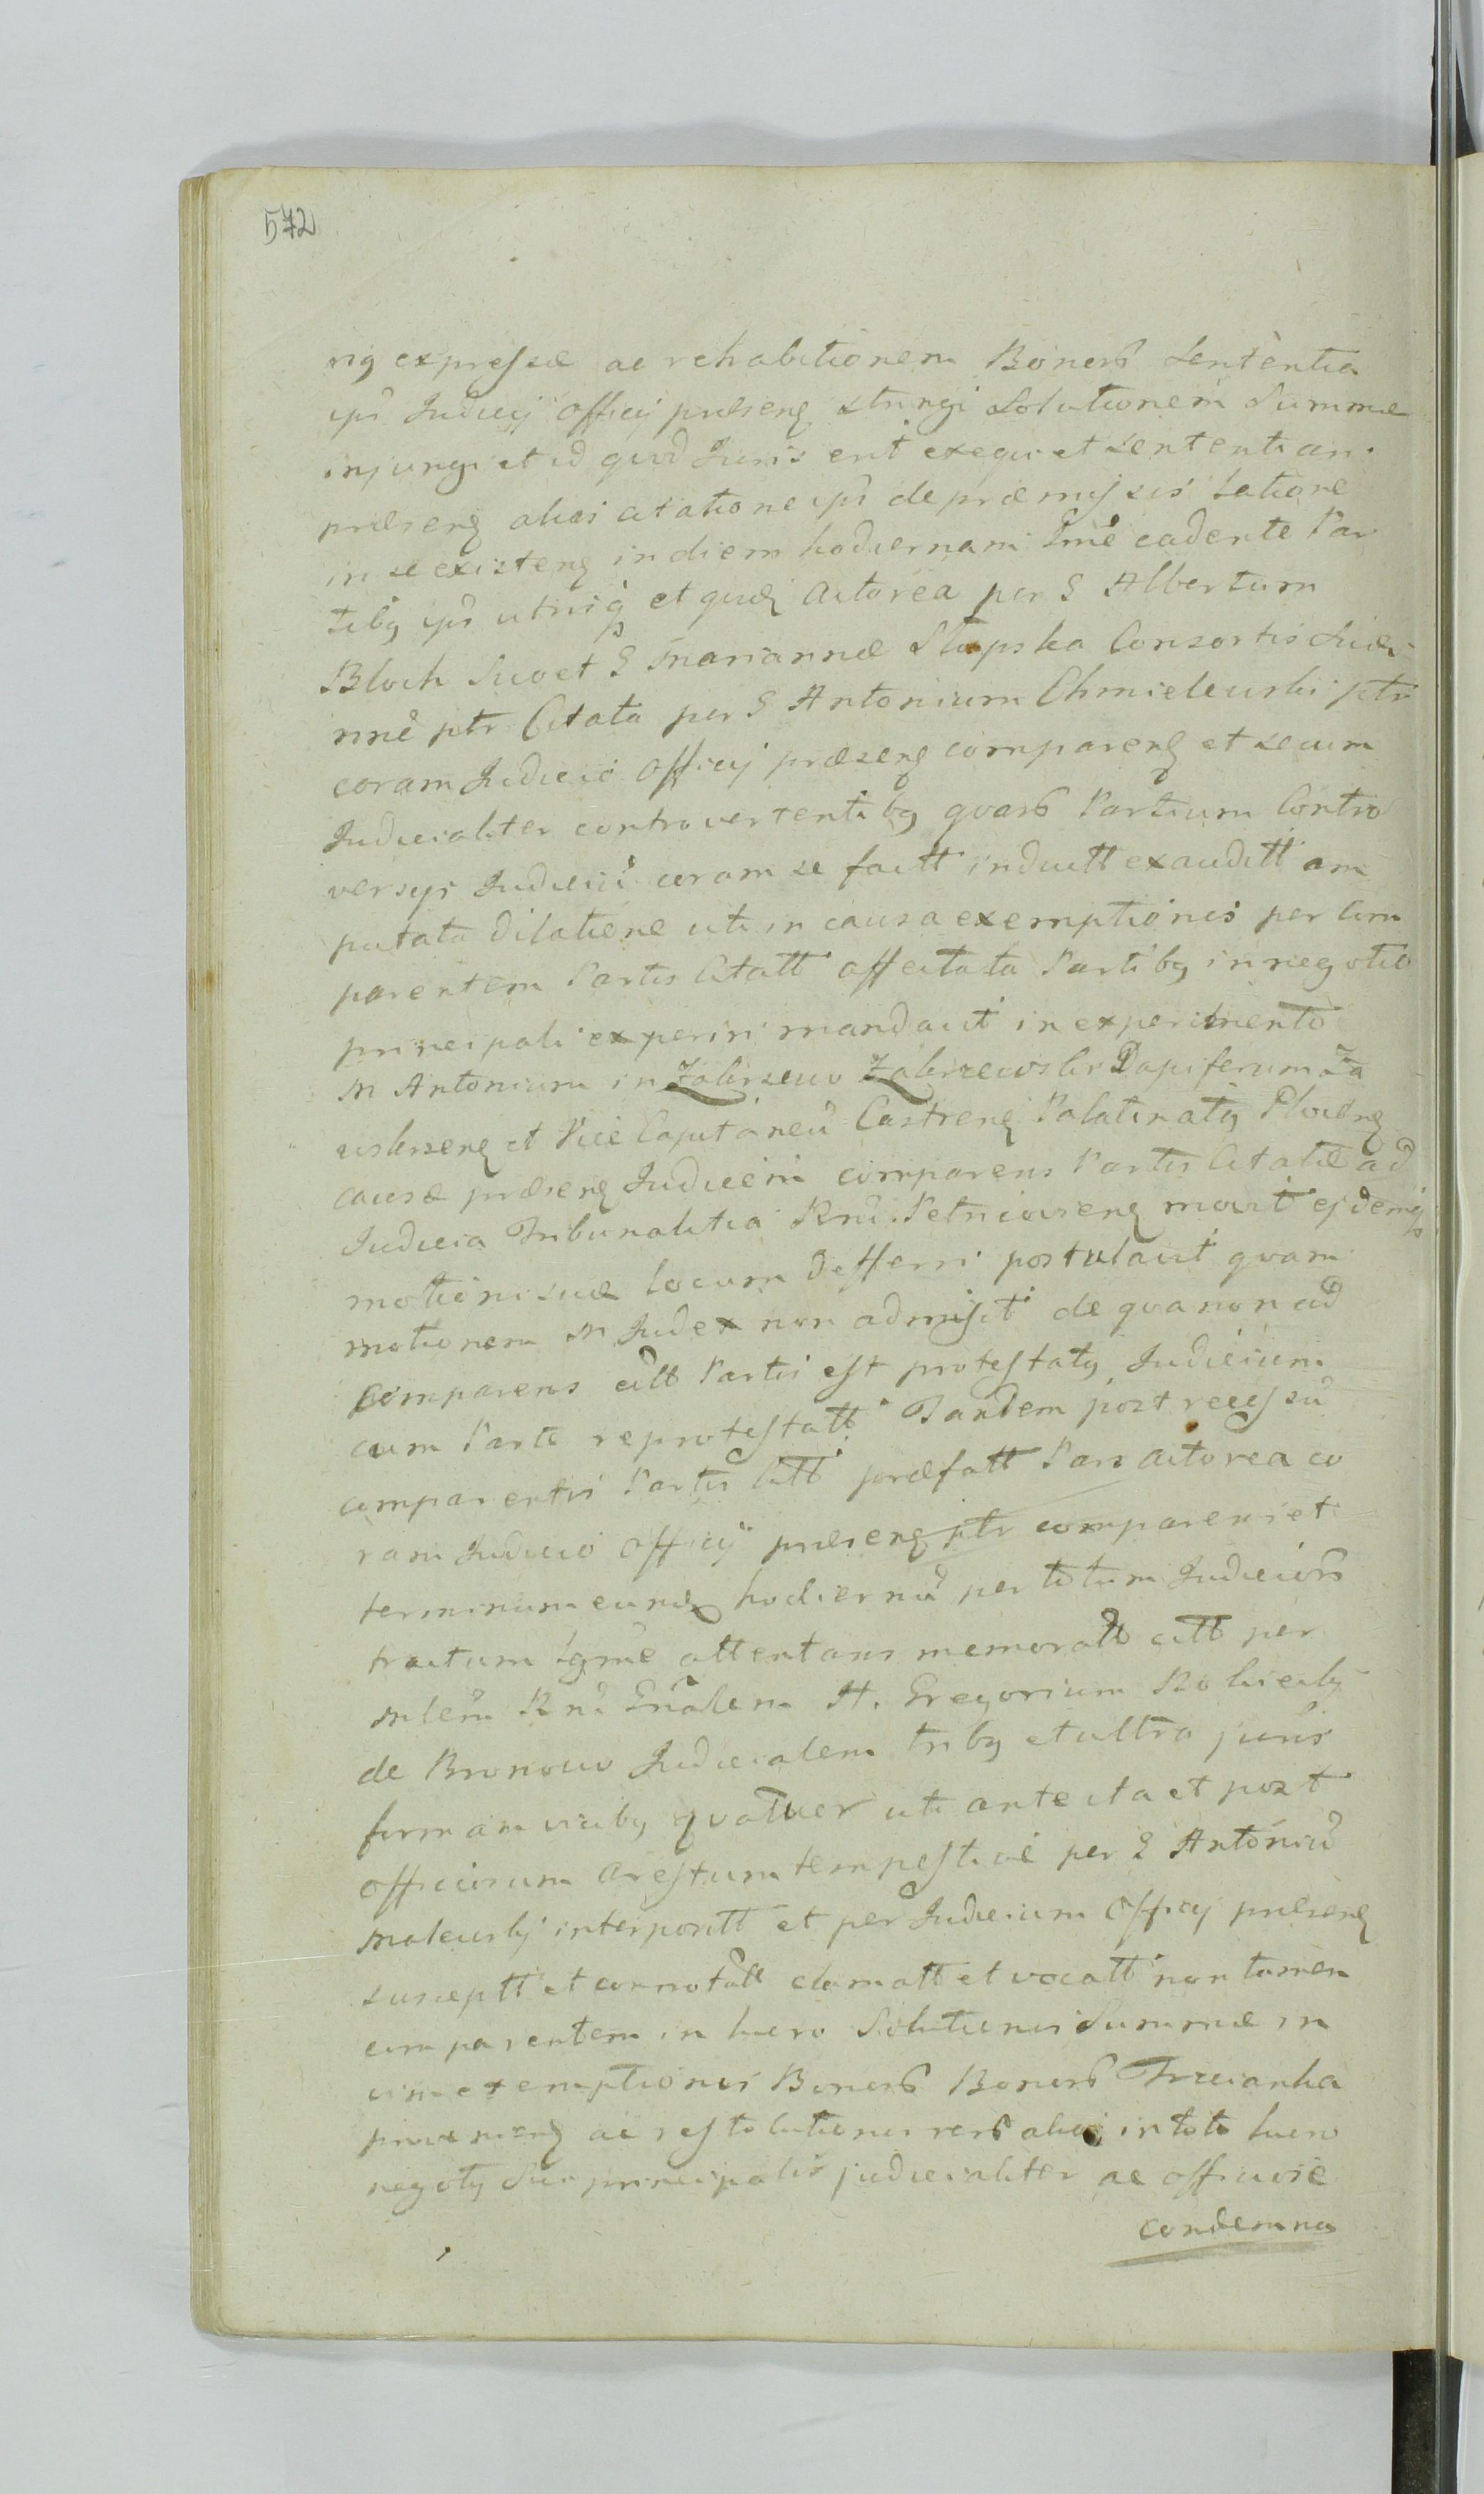 572
rig expressæ ac rehabitionem Bonorб Sententia
ipt Judicij Officij præsenę stringi Solutionem Summæ
injungi et id quod Juris erit exequi et sententiam
præsenę alias citatione ipt de præmissis Latione
in se existenę in diem hodiernam tme cadente Par
tibg ipt utrisq et quidę Actorea per G Albertum
Bloch Suo et G Mariannæ Slupska Consortis Suæ
nne ptr Citata per G Antonium Chmielewski ptr
coram Judicio Officij præsenę comparenę et secum
Judicialiter controvertentibg quarб Partium Contro
versijs Judiciũ coram se factt inductt exauditt am
putata Dilatione uti in causa exemptionis per Com
parentem Partis Citatt affectata Partibg in negotio
principali experiri mandavit in experimento
M Antonium in Zakrzewo Zakrzewski Dapiferum Za
wskrzenę et Vice Capitaneũ Castrenę Palatinatg Plocenę
causæ præsenę Judicem comparens Partis Citatæ ad
Judicia Tribunalitia Rni Petricovienę movit ejdemq
motioni suæ locum defferri postulavit quam
motionem M Judex non admisit de qua non ad
Comparens citt Partis est protestatg Judicium
cum Parte reprotestatt Tandem post recessũ
comparentis Partis Citt præfatt Pars Actorea co
ram Judicio Officij præsenę ptr comparens et
terminum eundę hodiernũ per totum Judiciorб
tractum tgme attentans memoratt citt per
Mlem Rni Gnalem H. Gregorium Rokicky
de Bronowo Judicialem tribg et ultra juris
formam vicibg quatuor uti ante ita et post
officiosum Arestum tempestive per G Antoniũ
Malewsky interpositt et per Judicium Officij præsenę
susceptt et connotatt clamatt et vocatt non tamen
comparentem in lucro Solutionis Summæ in
vim exemptionis Bonorб Bonorб Trzcianka
provenienę ac restitutionis rerб alias in toto lucro
negoty Sui principalis judicialiter ac officiose
condemna